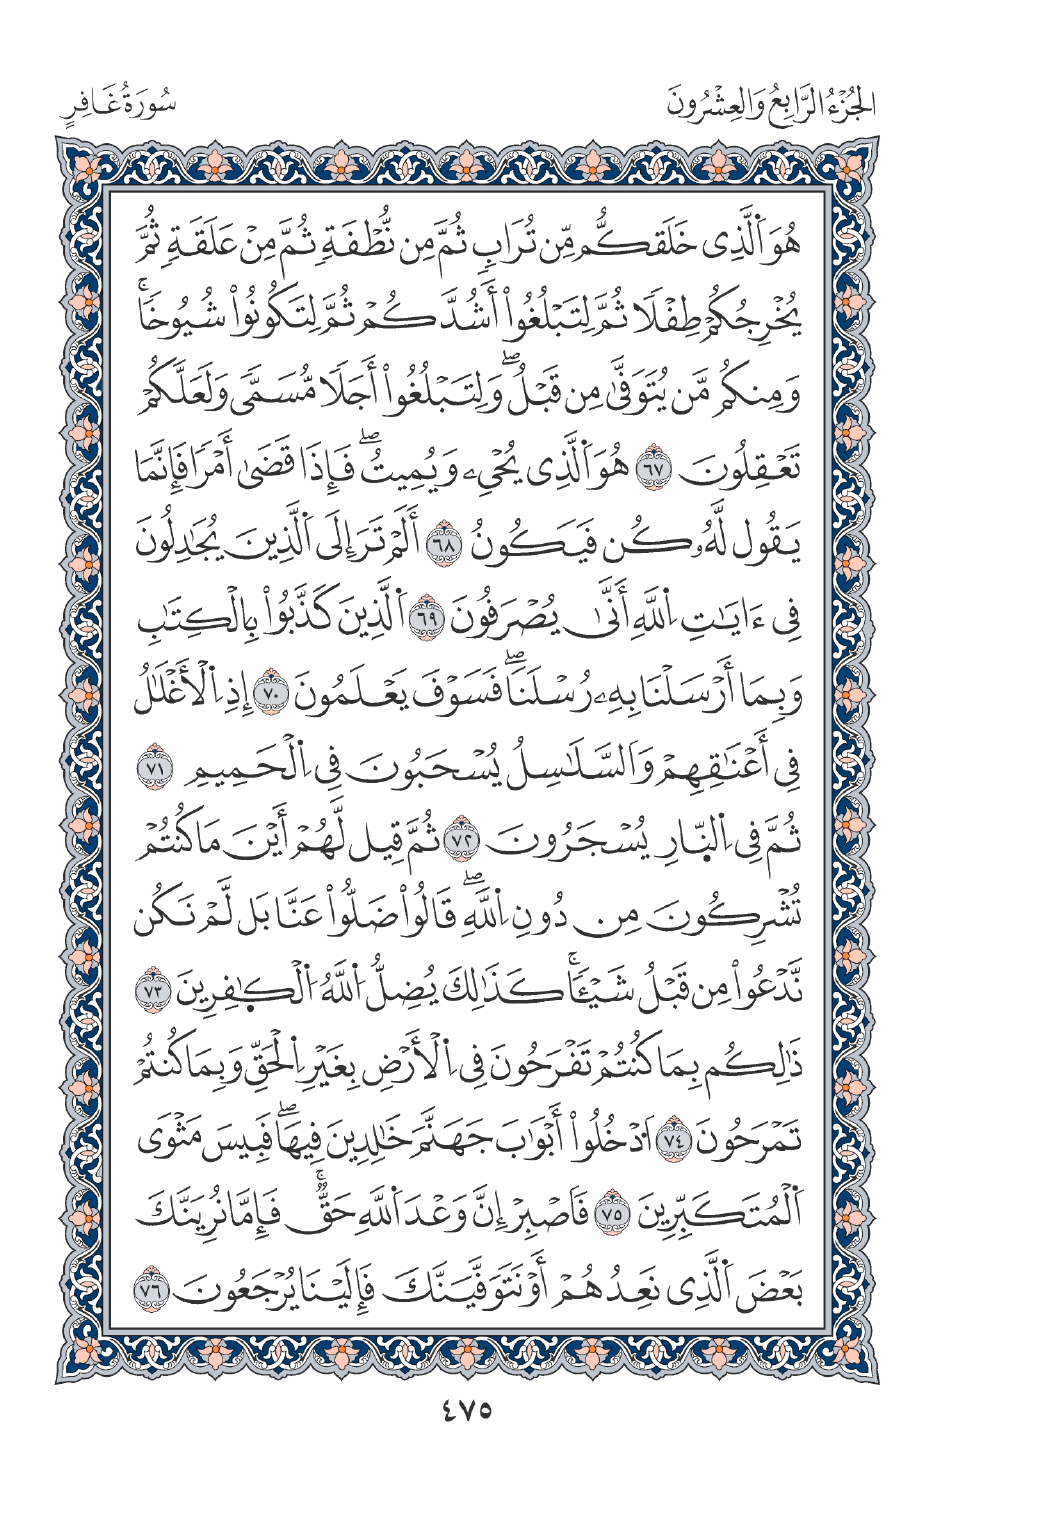 الجُزْءُ الرَّابِعُ وَالعِشْرُونَ
سُورَةُ غَافِرٍ
هُوَ اَ۬لَّذِى خَلَقَكُم مِّن تُرَابٖ ثُمَّ مِن نُّطْفَةٖ ثُمَّ مِنْ عَلَقَةٖ ثُمَّ
يُخْرِجُكُمْ طِفْلاٗ ثُمَّ لِتَبْلُغُواْ أَشُدَّكُمْ ثُمَّ لِتَكُونُواْ شُيُوخاٗۚ
وَمِنكُم مَّن يُتَوَفَّىٰ مِن قَبْلُۖ وَلِتَبْلُغُواْ أَجَلاٗ مُّسَمّٗى وَلَعَلَّكُمْ
تَعْقِلُونَ ٦٧ هُوَ اَ۬لَّذِى يُحْيِۦ وَيُمِيتُۖ فَإِذَا قَضَىٰ أَمْراٗ فَإِنَّمَا
يَقُول لَّهُۥ كُن فَيَكُونُ ٦٨ أَلَمْ تَرَ إِلَى اَ۬لَّذِينَ يُجَٰدِلُونَ
فِى ءَايَٰتِ اِ۬للَّهِ أَنَّىٰ يُصْرَفُونَ ٦٩ اَ۬لَّذِينَ كَذَّبُواْ بِالْكِتَٰبِ
وَبِمَا أَرْسَلْنَا بِهِۦ رُسْلَنَاۖ فَسَوْفَ يَعْلَمُونَ ٧٠ إِذِ اِ۬لْأَغْلَٰلُ
فِى أَعْنَٰقِهِمْ وَاَلسَّلَٰسِلُ يُسْحَبُونَ فِى اِ۬لْحَمِيمِ ٧١
ثُمَّ فِى اِ۬لنّ۪ارِ يُسْجَرُونَ ٧٢ ثُمَّ قِيل لَّهُمْ أَيْنَ مَا كُنتُمْ
تُشْرِكُونَ مِن دُونِ اِ۬للَّهِۖ قَالُواْ ضَلُّواْ عَنَّا بَل لَّمْ نَكُن
نَّدْعُواْ مِن قَبْلُ شَيْـٔاٗۚ كَذَٰلِكَ يُضِلُّ اُ۬للَّهُ اُ۬لْكٰ۪فِرِينَ ٧٣
ذَٰلِكُم بِمَا كُنتُمْ تَفْرَحُونَ فِى اِ۬لْأَرْضِ بِغَيْرِ اِ۬لْحَقِّ وَبِمَا كُنتُمْ
تَمْرَحُونَ ٧٤ اَ۟دْخُلُواْ أَبْوَٰبَ جَهَنَّمَ خَٰلِدِينَ فِيهَاۖ فَبِيسَ مَثْوَى
اَ۬لْمُتَكَبِّرِينَ ٧٥ فَاَصْبِرْ إِنَّ وَعْدَ اَ۬للَّهِ حَقّٞۚ فَإِمَّا نُرِيَنَّكَ
بَعْضَ اَ۬لَّذِى نَعِدُهُمْ أَوْ نَتَوَفَّيَنَّكَ فَإِلَيْنَا يُرْجَعُونَ ٧٦
٤٧٥